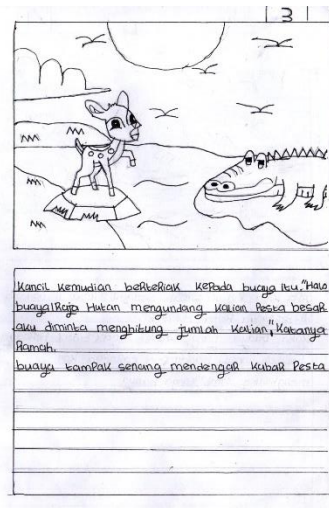 3
Kancil kemudian beRteRiak kePada buaya itu."Halo
buaya!Raja Hutan mengundang kalian Pesta besaR
aku diminta menghitung jumlah kalian", Katanya
Ramah.
buaya tamPak senang mendengaR KabaR Pesta